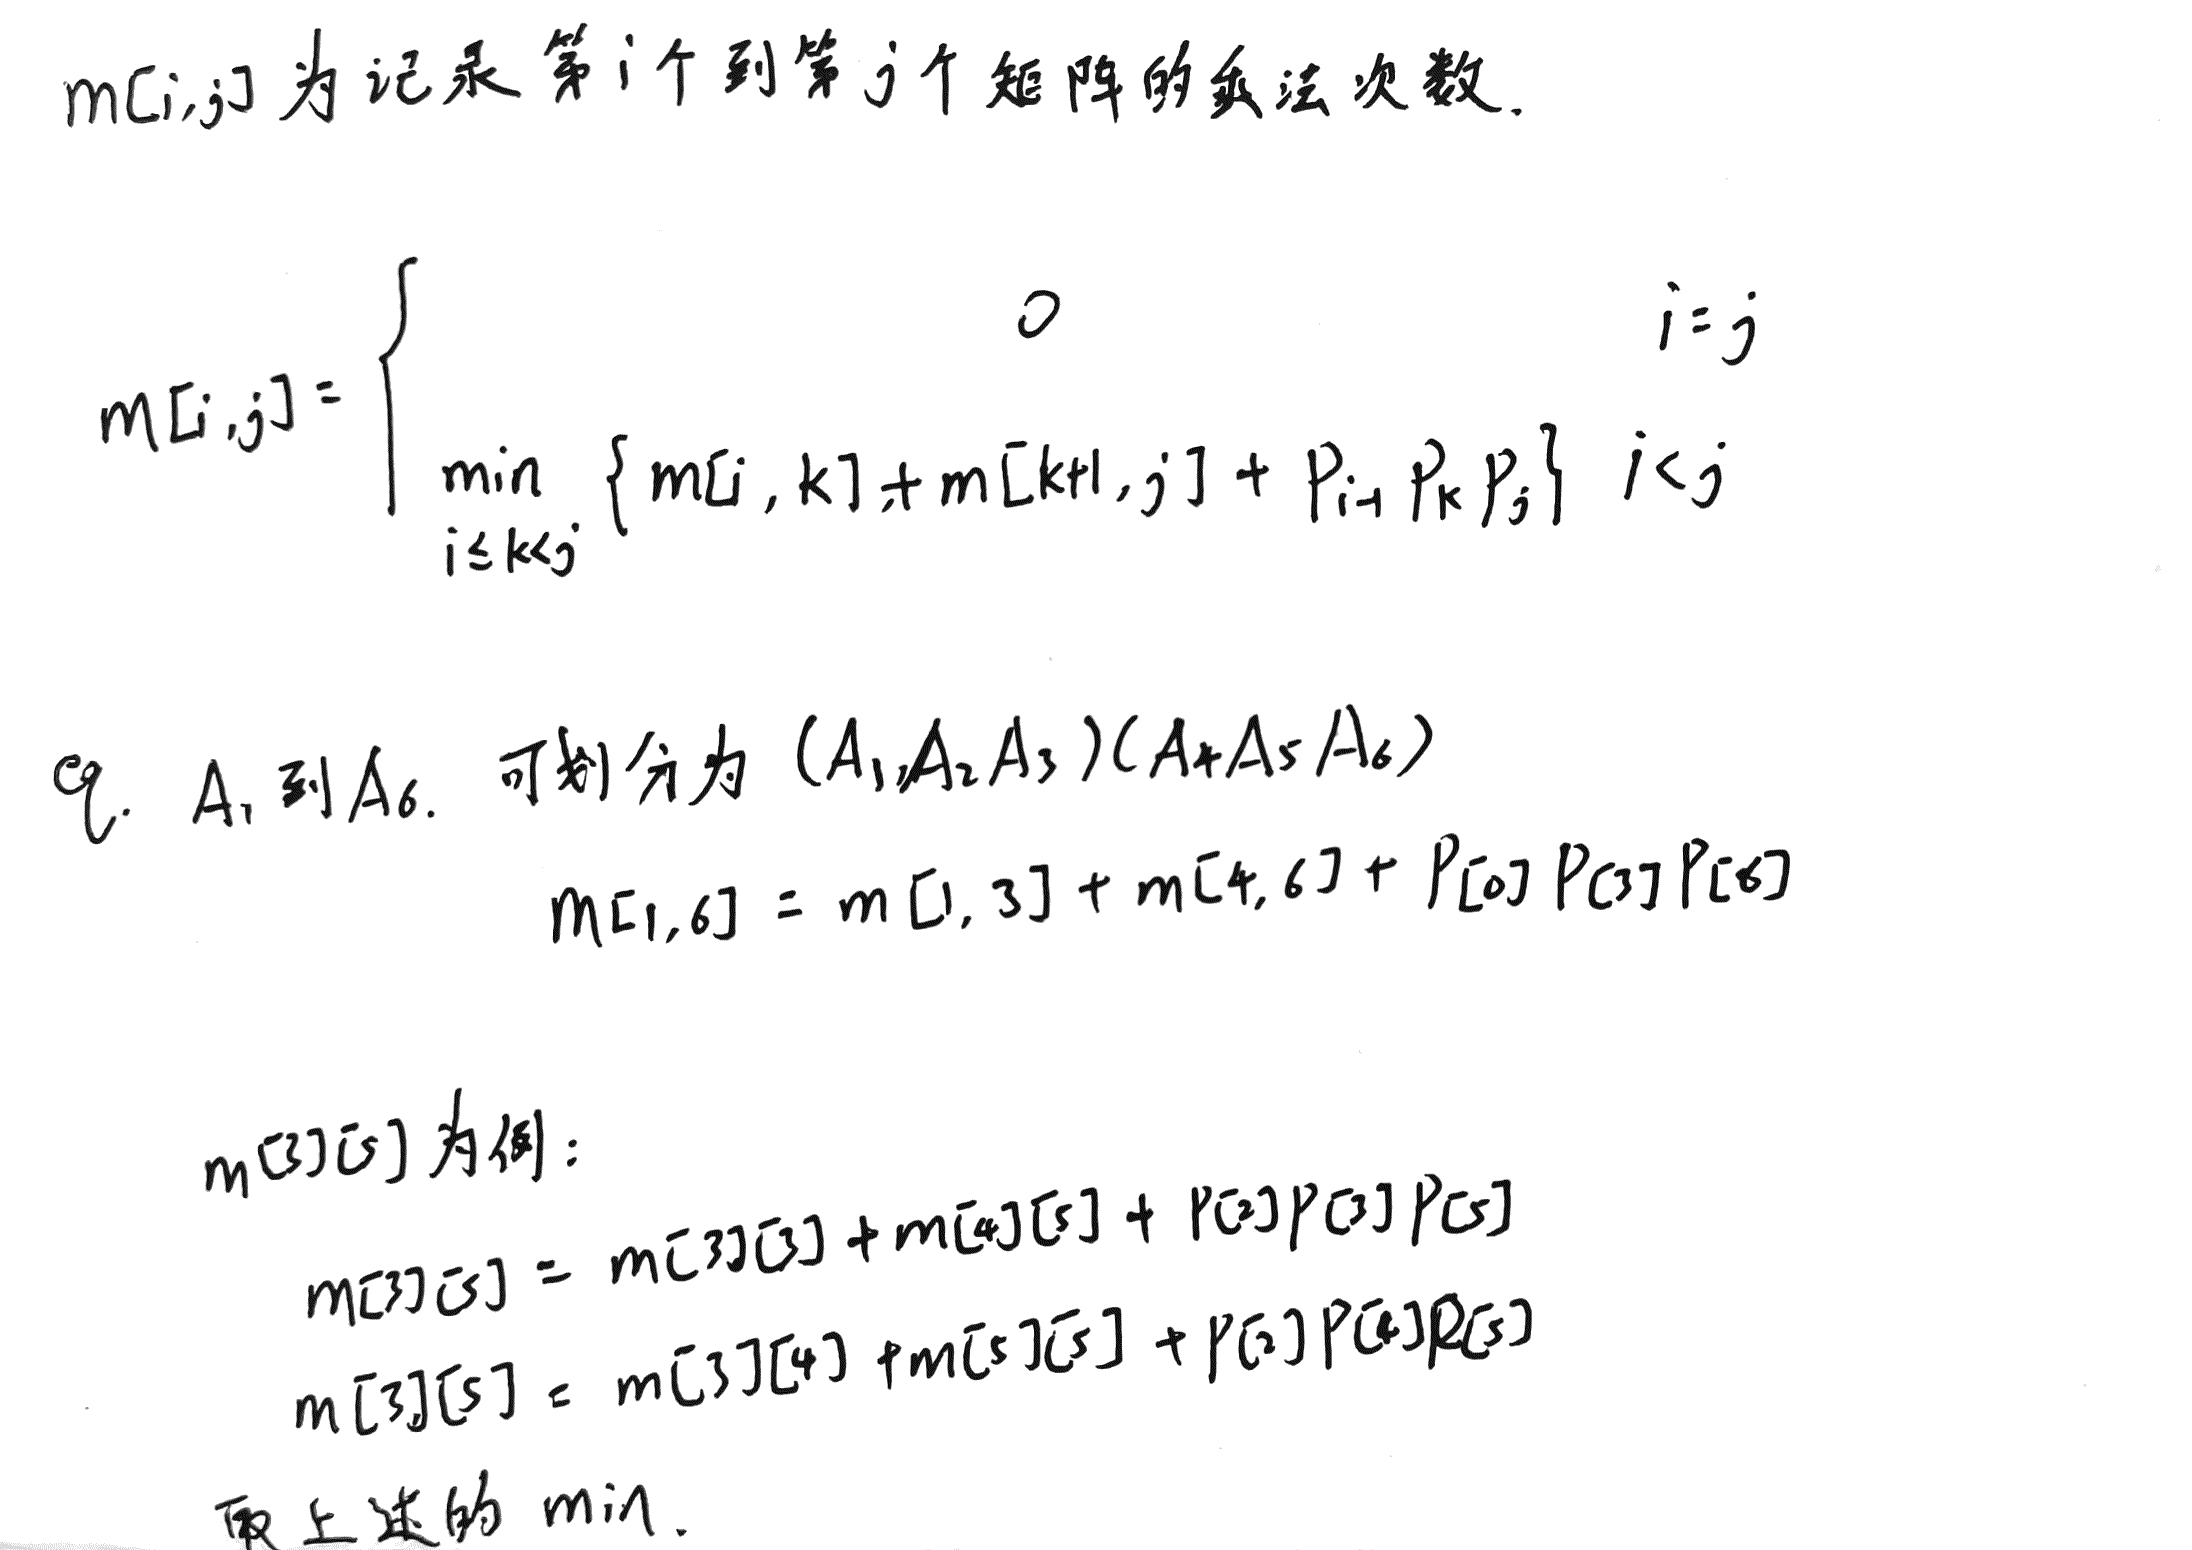 m[i,j] 为记录第i个到第j个矩阵的乘法次数.
0 i=j
m[i,j]=
min {m[i,k]+m[k+1,j]+P_{i-1}P_kP_j} i<j
i≤k<j
eg. A₁到A₆. 可划分为 (A₁A₂A₃)(A₄A₅A₆)
m[1,6] = m[1,3]+m[4,6]+P[0]P[3]P[6]
m[3][5]为例:
m[3][5] = m[3][3]+m[4][5]+P[2]P[3]P[5]
m[3][5] = m[3][4]+m[5][5]+P[2]P[4]P[5]
取上述的 min.